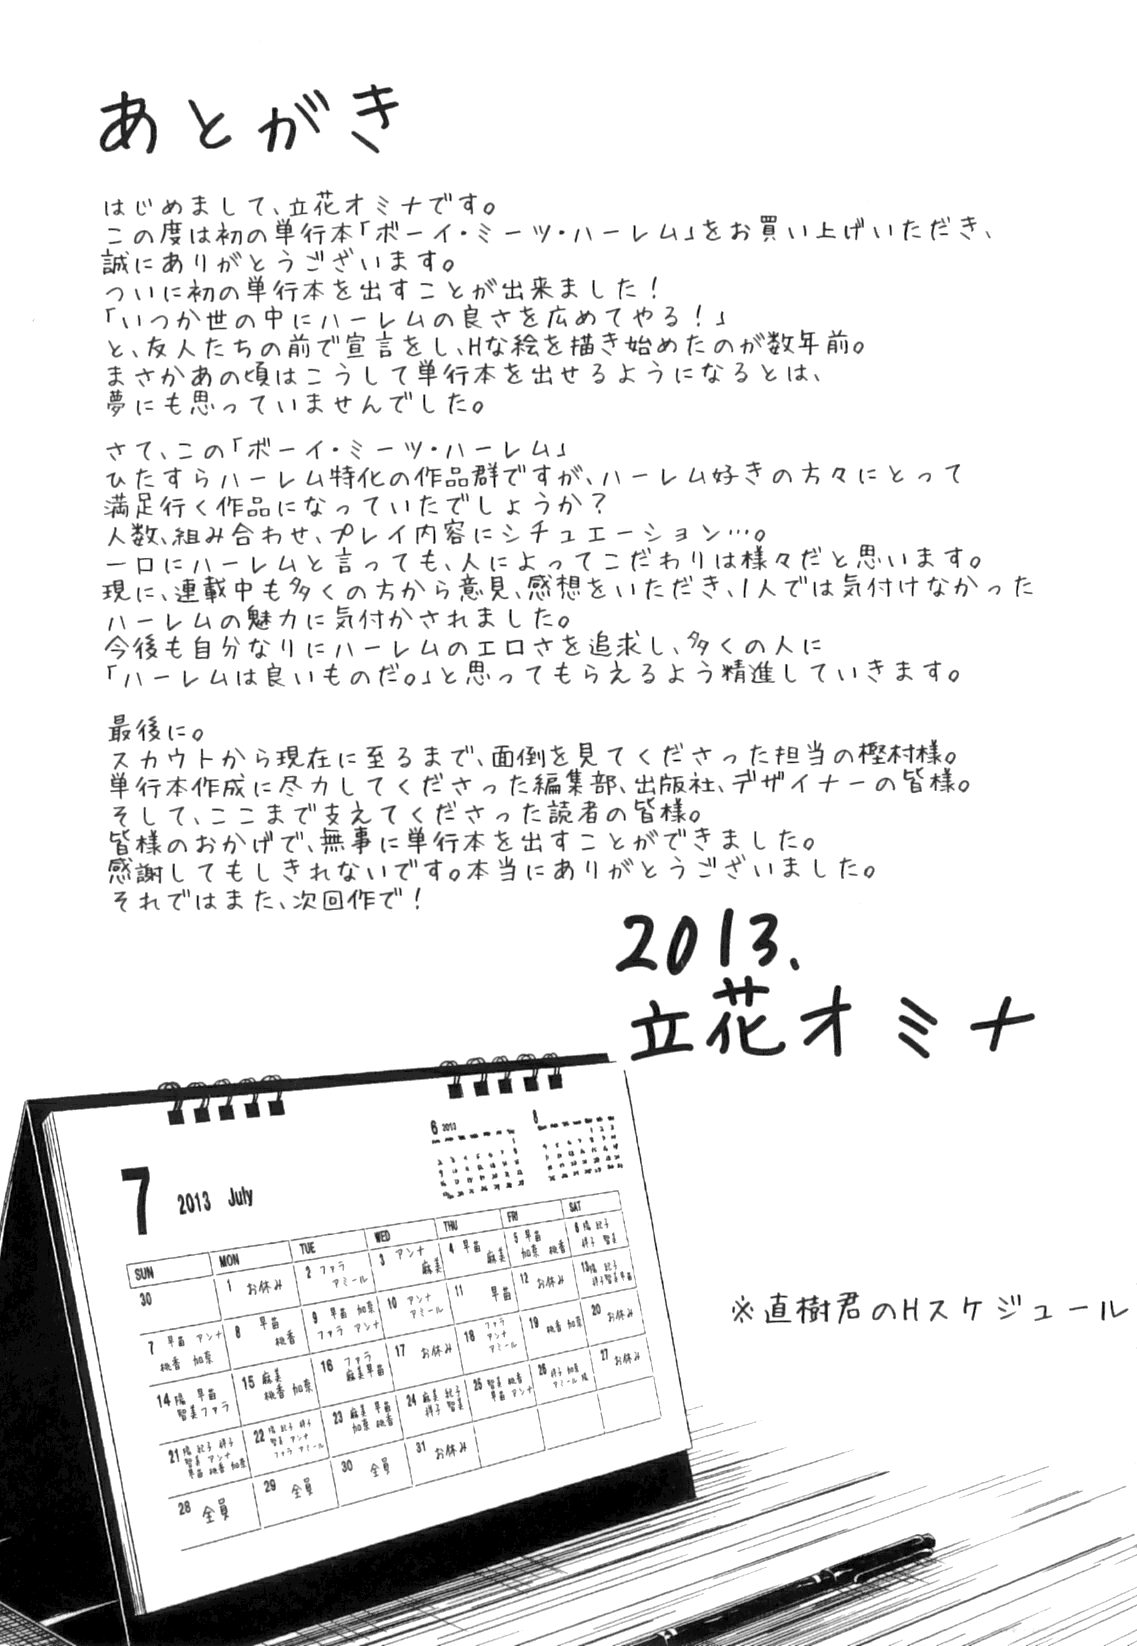 あとがき
はじめまして、立花オミナです。
この度は初の単行本「ボーイ・ミーツ・ハーレム」をお買い上げいただき、
誠にありがとうございます。
ついに初の単行本を出すことが出来ました!
「いつか世の中にハーレムの良さを広めてやる!」
と、友人たちの前で宣言をし、Hな絵を描き始めたのが数年前。
まさかあの頃はこうして単行本を出せるようになるとは、
夢にも思っていませんでした。
さて、この「ボーイ・ミーツ・ハーレム」
ひたすらハーレム特化の作品群ですが、ハーレム好きの方々にとって
満足行く作品になっていたでしょうか?
人数、組み合わせ、プレイ内容にシチュエーション…。
一口にハーレムと言っても、人によってこだわりは様々だと思います。
現に、連載中も多くの方から意見、感想をいただき、1人では気付けなかった
ハーレムの魅力に気付かされました。
今後も自分なりにハーレムのエロさを追求し、多くの人に
「ハーレムは良いものだ。」と思ってもらえるよう精進していきます。
最後に。
スカウトから現在に至るまで、面倒を見てくださった担当の樫村様。
単行本作成に尽力してくださった編集部、出版社、デザイナーの皆様。
そして、ここまで支えてくださった読者の皆様。
皆様のおかげで、無事に単行本を出すことができました。
感謝してもしきれないです。本当にありがとうございました。
それではまた、次回作で!
2013.
立花オミナ
6 2013
8
7 2013 July
SUN MON TUE WED THU FRI SAT
30 1 お休み 2 ファラ アミール 3 アンナ 麻美 4 早苗 麻美 5 早苗 加奈 桃香 6 陽 紀子 祥子 智美
7 早苗 アンナ 桃香 加奈 8 早苗 桃香 9 早苗 加奈 ファラ アンナ 10 アンナ アミール 11 早苗 12 お休み 13 陽 紀子 祥子 智美 早苗
14 陽 早苗 智美 ファラ 15 麻美 桃香 加奈 16 ファラ 麻美 早苗 17 お休み 18 ファラ アンナ アミール 19 桃香 加奈 20 お休み
21 陽 紀子 祥子 智美 アンナ 早苗 桃香 加奈 22 陽 紀子 祥子 智美 アンナ ファラ アミール 23 麻美 早苗 加奈 桃香 24 麻美 紀子 祥子 智美 25 智美 桃香 早苗 アンナ 26 祥子 加奈 アミール 陽 27 お休み
28 全員 29 全員 30 全員 31 お休み
※直樹君のHスケジュール